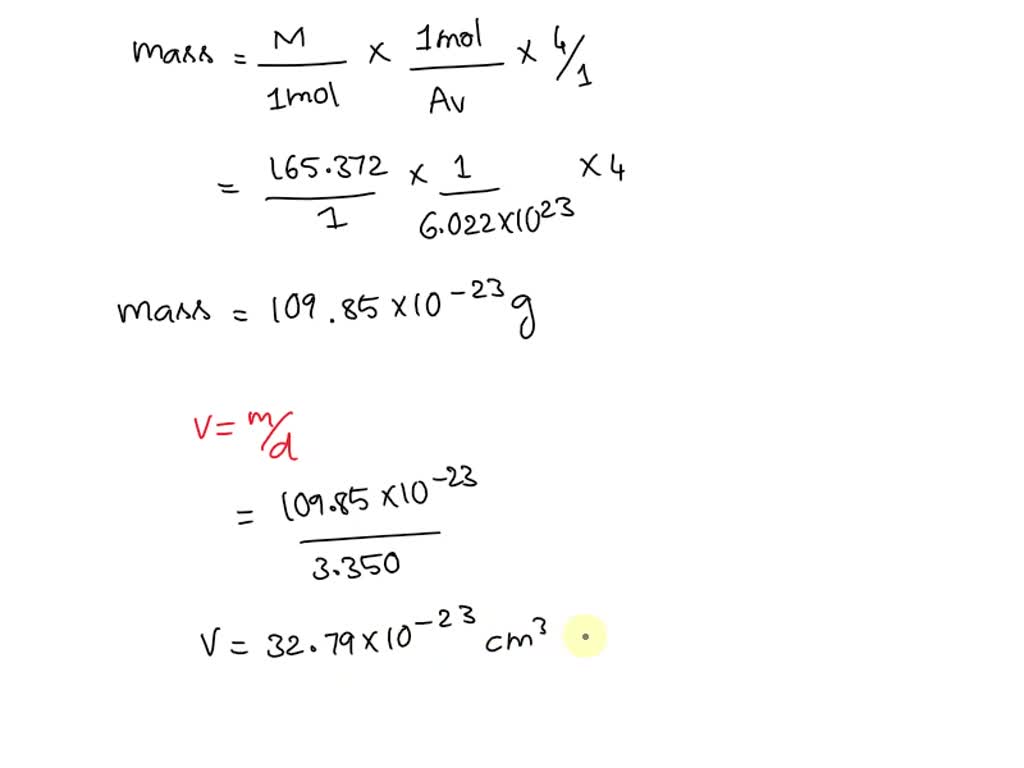 mass = M/1mol × 1mol/Av × 4/1
= 165.372/1 × 1/6.022×10²³ × 4
mass = 109.85 × 10⁻²³ g
V = m/d
= 109.85 × 10⁻²³/3.350
V = 32.79 × 10⁻²³ cm³